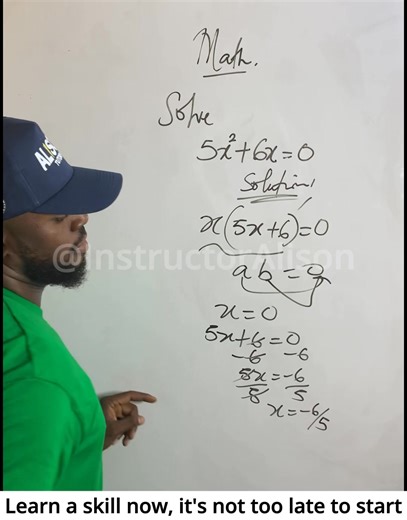 Math.
Solve
5x²+6x=0
Solution
x(5x+6)=0
@InstructorAlison
ab=0
x=0
5x+6=0
-6 -6
5x=-6
5 5
x=-6/5
Learn a skill now, it's not too late to start